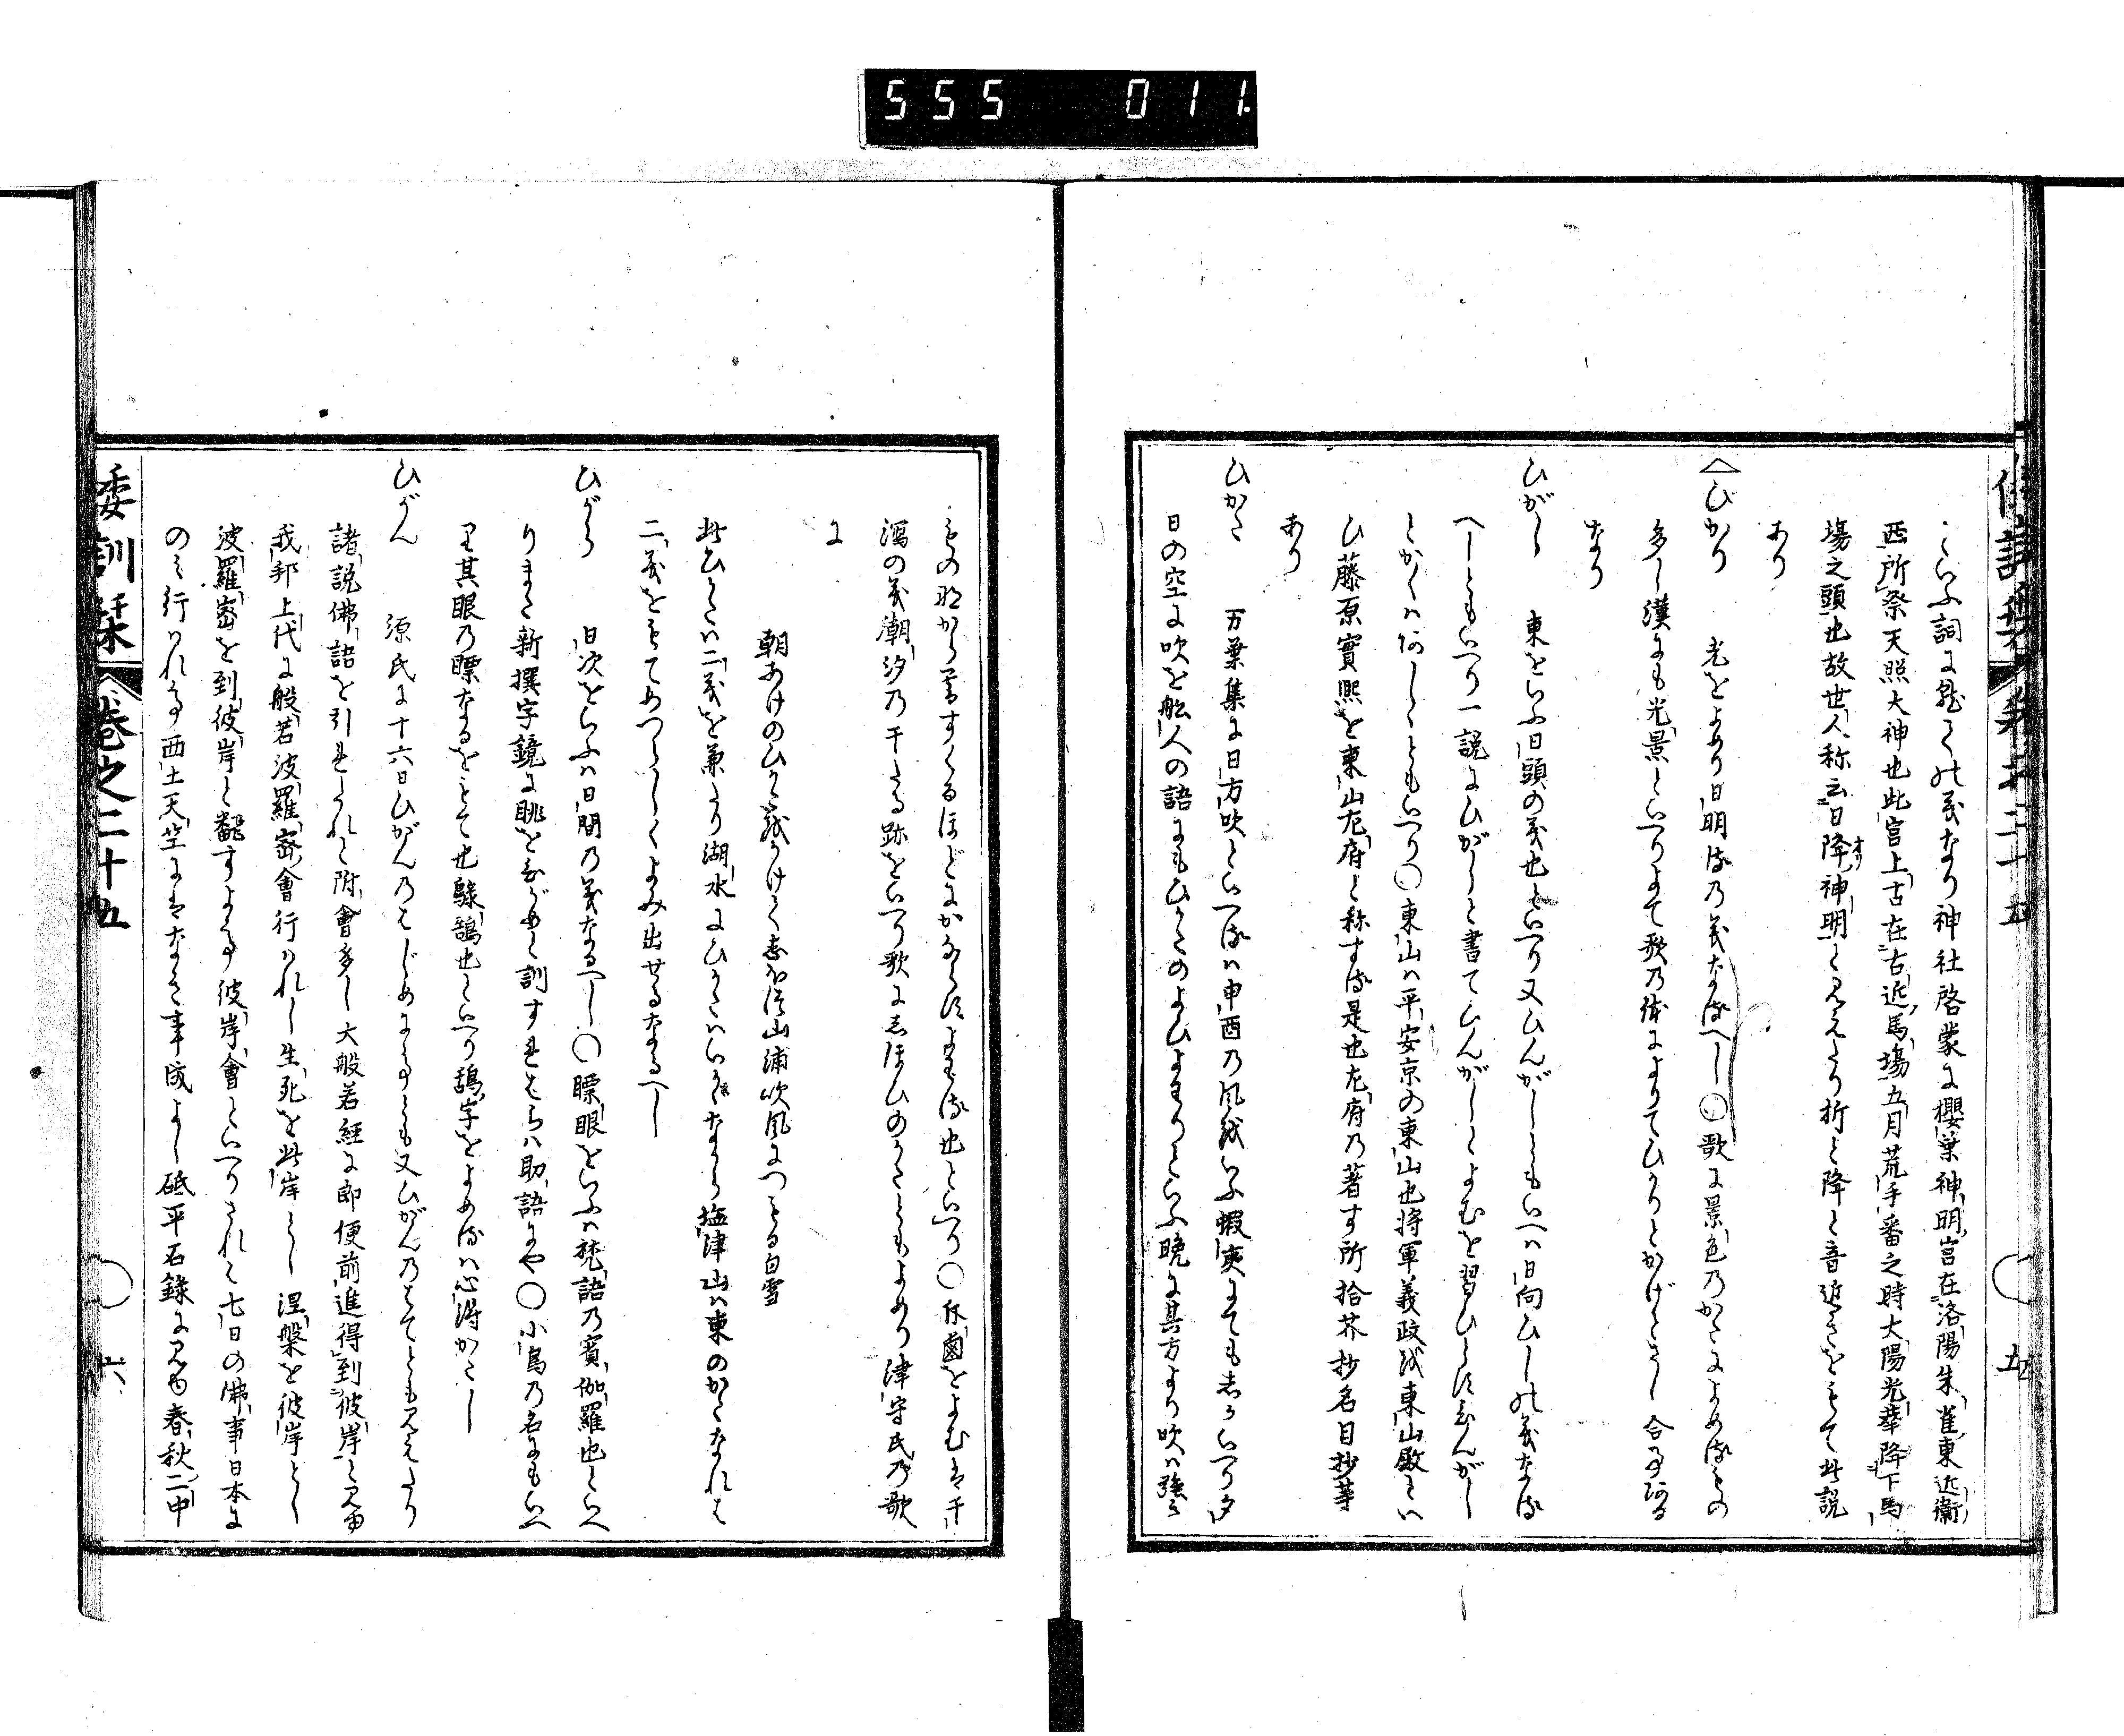 555 011
倭訓栞 巻之二十五 五
といふ詞に就ての義なり神社啓蒙に櫻葉神明宮在洛陽朱雀東近衛
西所祭天照大神也此宮上古在右近馬場五月荒手番之時大陽光華降下馬
場之頭也故世人称云日降神明と見えたり折と降と音近きをもて此説
あり
ひかり 光をよめり日明るの義なるへし○歌に景色のかたによめるもの
多し漢にも光景といへりよて歌の体によりてひかりとかげとさし合事ある
なり
ひがし 東をいふ日頭の義也といへり又ひんがしともいへハ日向ひしの義なる
へしともいへり一説にひがしと書てひんがしとよむを習ひとす
とかくハあしともいへり○東山ハ平安京の東山也将軍義政を東山殿とい
ひ藤原實熈を東山左府と称する是也左府の著す所拾芥抄名目抄等
あり
ひかた 万葉集に日方吹といへるハ申酉の風をいふ蝦夷にても志かいへり夕
日の空に吹を舩人の語にもひかたのよひよわりといふ晩に其方より吹ハ強き
ものながら暮すぐるほどにかならずよわる也といへり○斥鹵をよむは干
潟の義潮汐の干たる跡をいへり歌にしほひのかたともよめり津守氏の歌
に
朝あけのひかた吹かけて志ほつ山浦吹風につもる白雪
此ひかたハ二義を兼たり湖水にひかたハいかゞなから塩津山ハ東のかたなれは
二義をもてめつらしくよみ出せるなるへし
ひがら 日次をいふハ日間の義なるへし○瞟眼をいふハ梵語の賓伽羅也といへ
りまた新撰字鏡に眺をひがめと訓すれはらハ助語にや○小鳥の名にもいへ
り其眼の瞟なるをもて也騄鵠也といへり鵠字をよめるハ心得かたし
ひがん 源氏に十六日ひがんのはじめにとも又ひがんのはてとも見えたり
諸説佛語を引れと附會多し大般若經に即便前進得到彼岸と見ゆ
我邦上代に般若波羅密會行ハれし生死を此岸とし涅槃を彼岸とし
波羅密を到彼岸と飜すよて彼岸會といへりされと七日の佛事日本に
のミ行ハれて西土天竺にはなき事成よし砥平石錄に見ゆ春秋二中
倭訓栞 巻之二十五 六